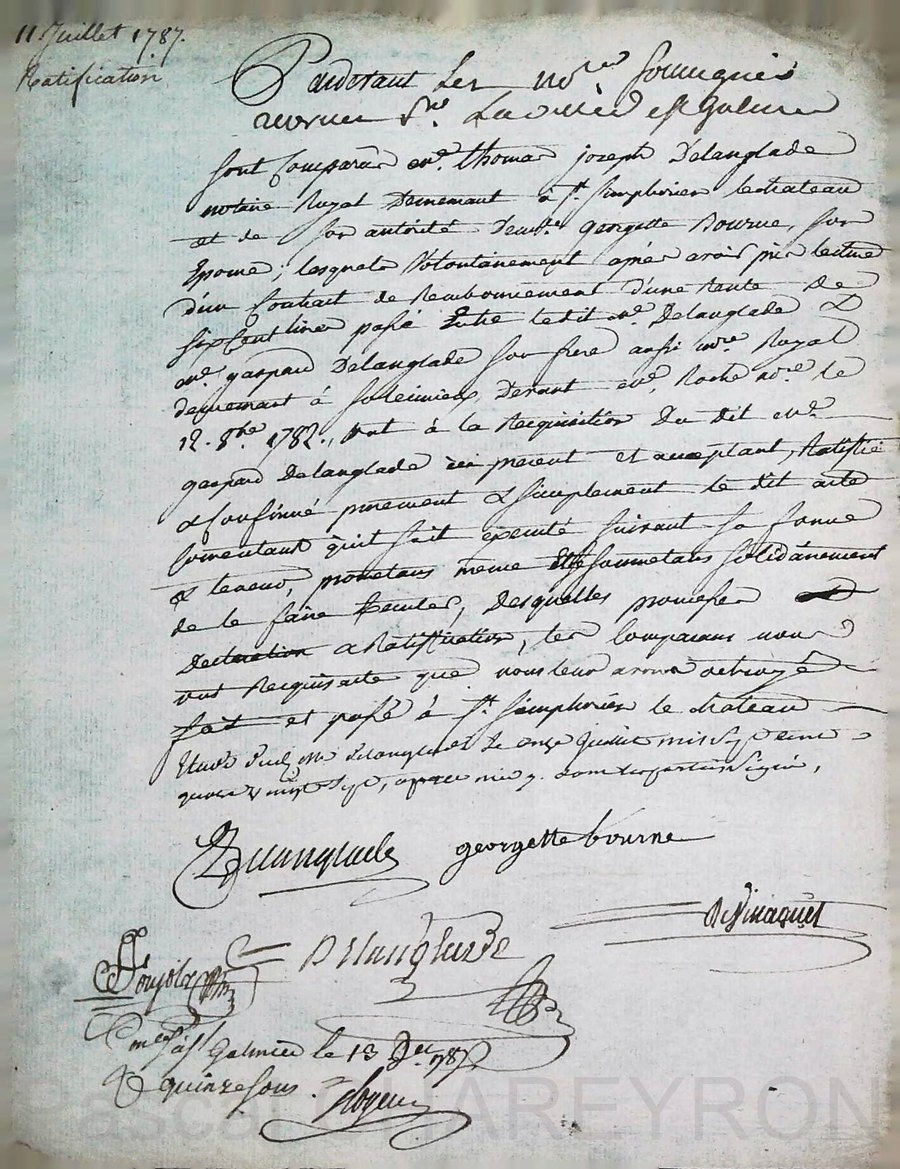 11 Juillet 1787.
Ratification
Pardevant Les no.res soussignés
sont Comparus me. thomas joseph Delanglade
notaire Royal Demeurant à St. Simphorien le chateau
et de son autorité dem.lle georgette Bourne, son
Epouse; lesquels Volontairement après avoir pris lecture
d'un Contrait de Remboursement d'une Rente De
six Cent livres passé Entre ledit me. Delanglade &
me. gaspard Delanglade son frere aussi no.re Royal
demeurant à Devant me. Roche no.re le
12. 8bre 1782., ont à la Requisition Du dit me.
gaspard Delanglade ici present et acceptant, Ratifié
& Confirmé purement & simplement le dit acte
consentant qu'il soit executé suivant sa forme
& teneur, promettans meme se soumetans solidairement
de le faire Executer, Desquelles promesses
Declaration & Ratification, les Comparans nous
ont Requis acte que nous leur avons octroyé
fait et passé à St. Simphorien le chateau
Etude dud. me Delanglade Le onze Juillet mil sept cent
quatre vingt sept, les parties signé,
Delanglade georgette bourne
Delanglade
à St. Galmier le 13 1787
quinze sous.
Pascal CHAREYRON